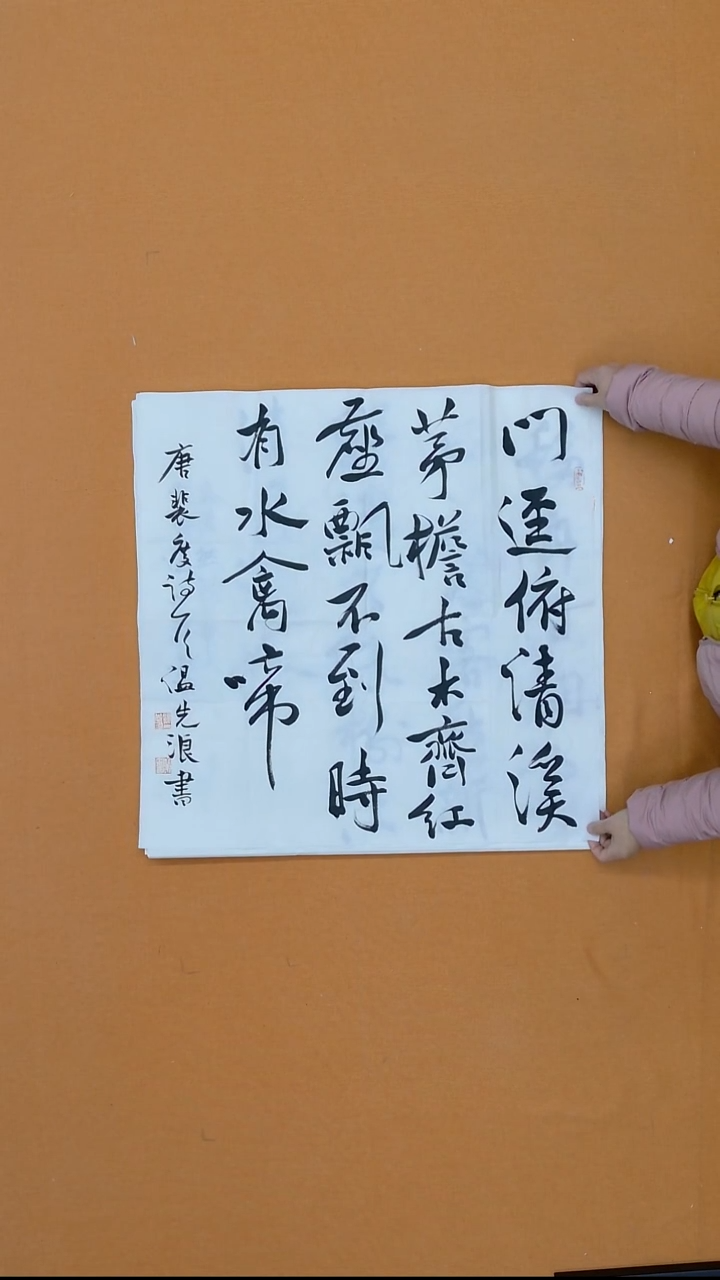 門逕俯清溪
茅檐古木齊紅
塵飄不到時
有水禽啼
唐裴度詩一首温先浪書